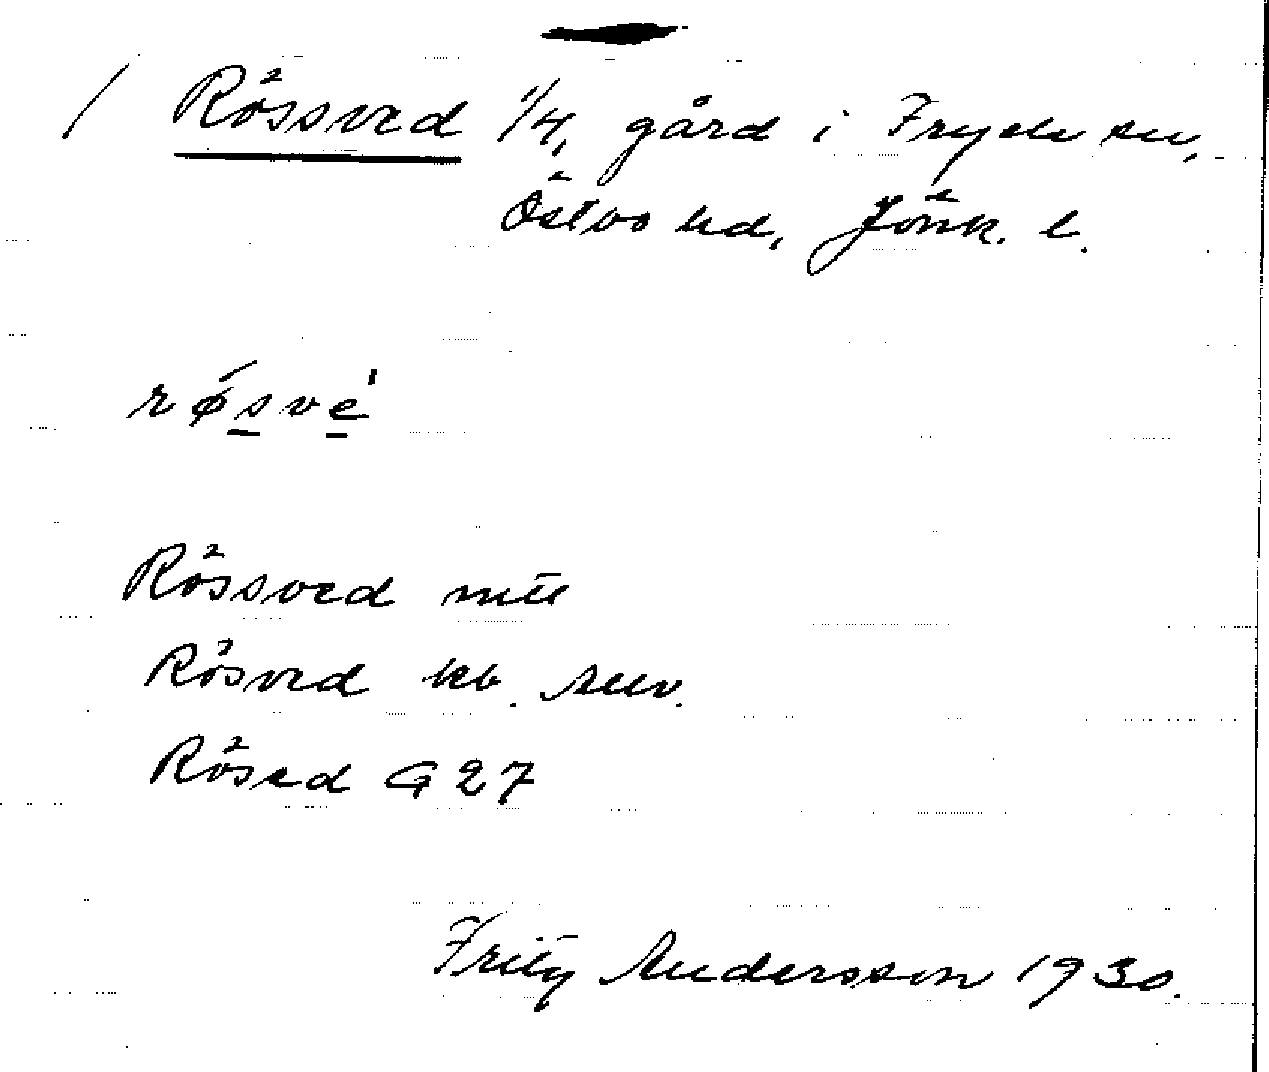 / Rössved 1/4, gård i Fryele sn,
Östbo hd, Jönk. l.
rǿsvé
Rössved mtl
Rösved kb. sv.
Rösed G27
Fritz Andersson 1930.